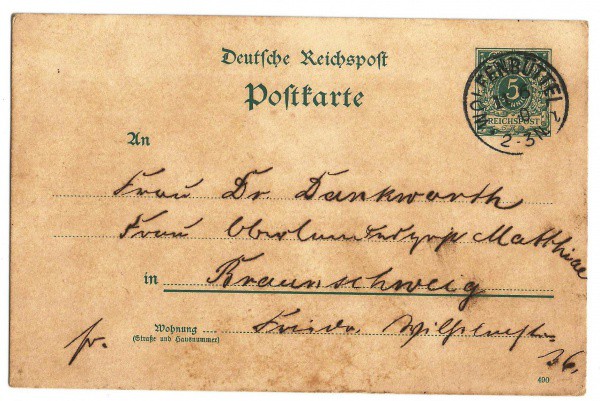 Deutsche Reichspost
Postkarte
5
REICHSPOST
WOLFENBÜTTEL 2
2-3N
An
Frau Dr. Dankworth
Frau Matthiae
in Braunschweig
Wohnung Friedr. Wilhelmstr.
(Straße und Hausnummer)
fr.
36.
490